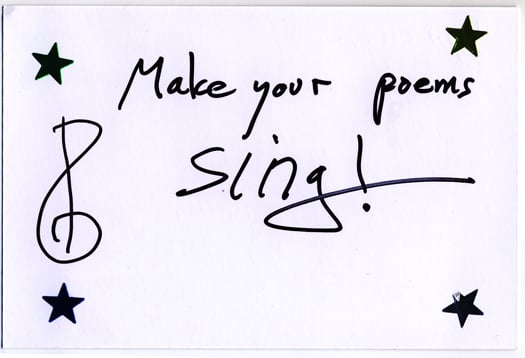 Make your poems
Sing!